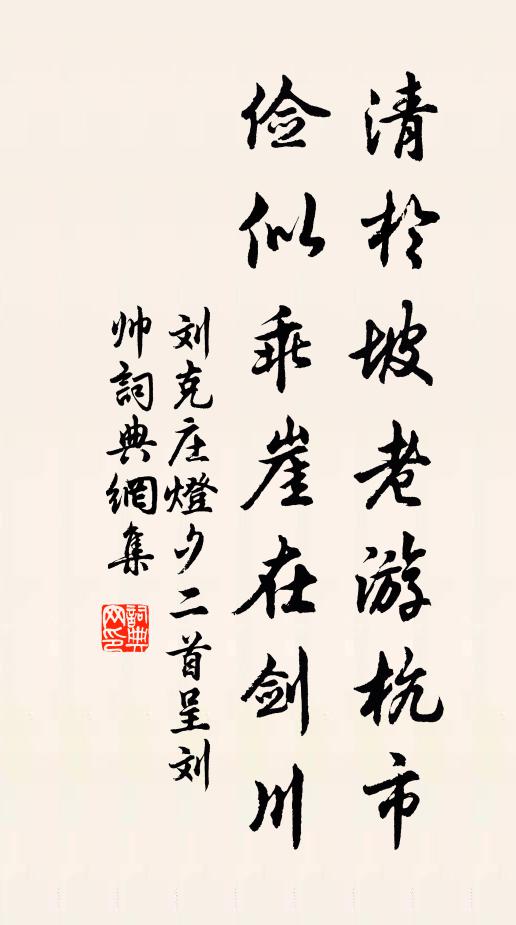 清於坡老游杭市
儉似乖崖在剑川
刘克庄燈夕二首呈刘
帅詞典網集
詞典網印